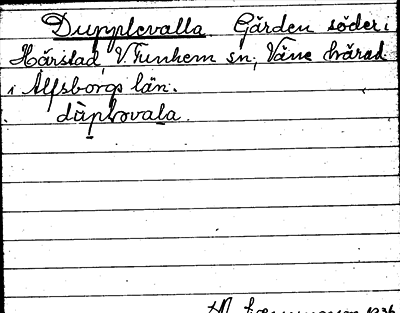 Dupplevalla Gården söder i
Hårstad, V. Tunhem sn, Väne härad
i Älfsborgs län.
dùplovala.
1936